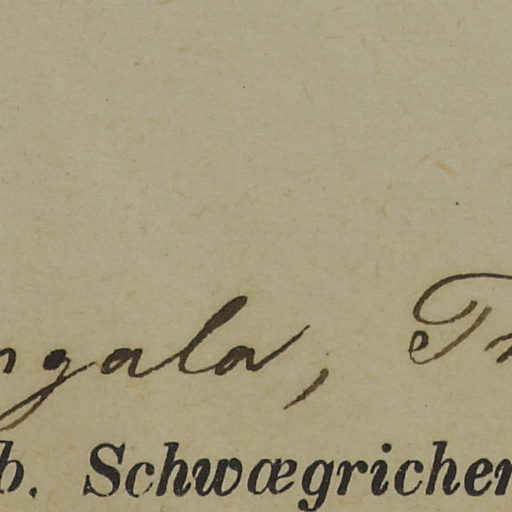 ngala, Tr
b. Schwægricher